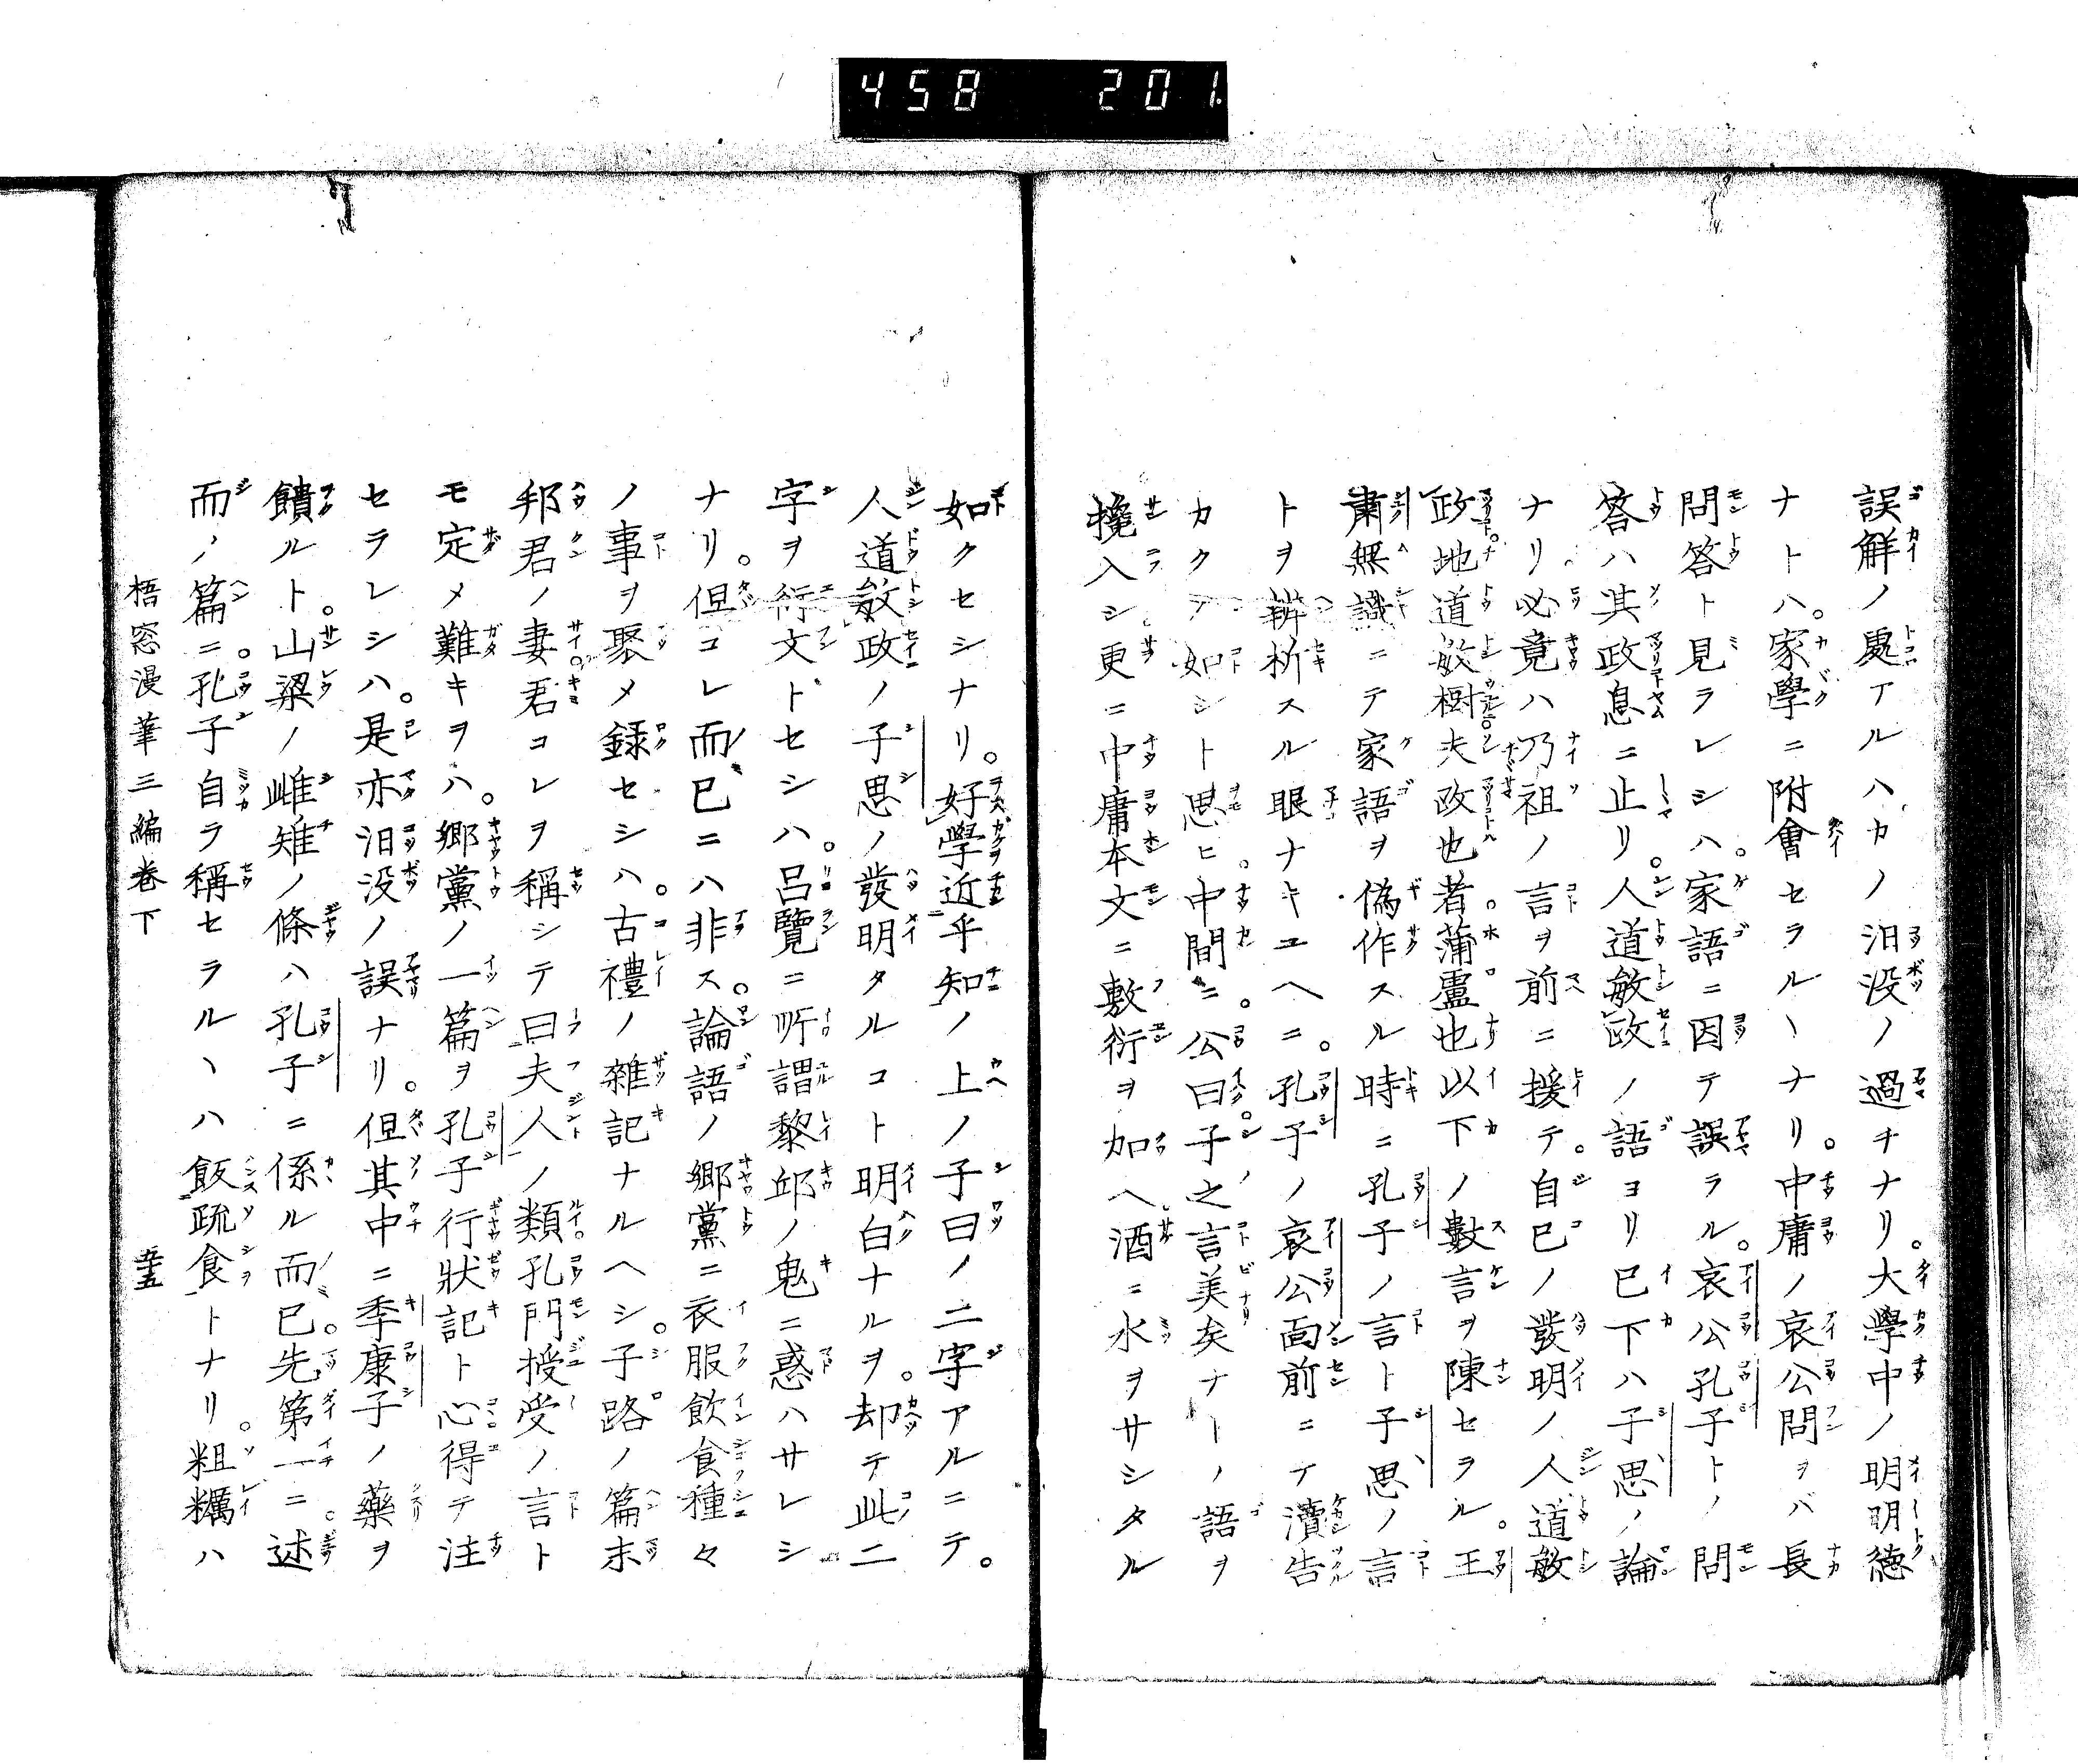 458 201
誤解ノ處アルハカノ汨没ノ過チナリ。大學中ノ明明徳
ナトハ。家學ニ附會セラルヽナリ。中庸ノ哀公問ヲバ長
問答ト見ラレシハ。家語ニ因テ誤ラル。哀公孔子トノ問
答ハ其政息ニ止リ。人道敏政ノ語ヨリ已下ハ子思ノ論
ナリ。必竟ハ乃祖ノ言ヲ前ニ援テ。自己ノ發明ノ人道敏
政地道敏樹夫政也者。蒲盧也以下ノ數言ヲ陳セラル。王
肅無識ニテ家語ヲ偽作スル時ニ孔子ノ言ト子思ノ言
トヲ辨析スル眼ナキユヘニ。孔子ノ哀公面前ニテ瀆告
カクノ如シト思ヒ。中間ニ。公曰子之言美矣ナーノ語ヲ
攙入シ更ニ中庸本文ニ敷衍ヲ加ヘ酒ニ水ヲサシタル
如クセシナリ。好學近乎知ノ上ノ子曰ノ二字アルニテ。
人道敏政ノ子思ノ發明タルコト明白ナルヲ。却テ此二
字ヲ衍文トセシハ。呂覽ニ所謂黎邱ノ鬼ニ惑ハサレシ
ナリ。但コレ而已ニハ非ス。論語ノ郷黨ニ衣服飲食種々
ノ事ヲ聚メ録セシハ。古禮ノ雜記ナルヘシ。子路ノ篇末
邦君ノ妻。君コレヲ稱シテ曰夫人ノ類。孔門授受ノ言ト
モ定メ難キヲハ。郷黨ノ一篇ヲ孔子行狀記ト心得テ注
セラレシハ。是亦汨没ノ誤ナリ。但其中ニ季康子ノ藥ヲ
饋ルト。山梁ノ雌雉ノ條ハ孔子ニ係ル而已。先第一ニ。述
而ノ篇ニ。孔子自ラ稱セラルヽハ飯疏食トナリ。粗糲ハ
梧窓漫筆三編巻下 五